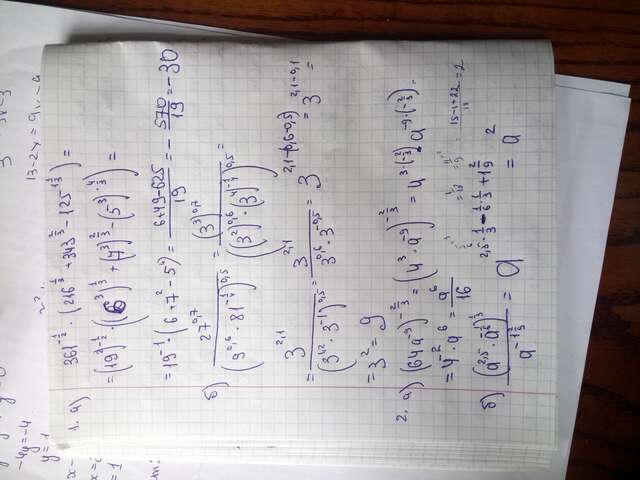 13-2x = 9
-4y=-4
y=1
1. а) 361^{-\frac{1}{2}} · (216^{\frac{1}{3}} + 343^{\frac{2}{3}} - 125^{1\frac{1}{3}}) =
= (19)^{2·-\frac{1}{2}} · ((6^3)^{\frac{1}{3}} + (7^3)^{\frac{2}{3}} - (5^3)^{\frac{4}{3}}) =
= 19^{-1} · (6 + 7^2 - 5^4) = \frac{6+49-625}{19} = -\frac{570}{19} = -30
б) \frac{27^{0,7}}{(9^{0,6} · 81^{-\frac{1}{4}})^{0,5}} = \frac{(3^3)^{0,7}}{((3^2)^{0,6} · (3^4)^{-\frac{1}{4}})^{0,5}} =
= \frac{3^{2,1}}{(3^{1,2} · 3^{-1})^{0,5}} = \frac{3^{2,1}}{3^{0,6} · 3^{-0,5}} = 3^{2,1-(0,6-0,5)} = 3^{2,1-0,1} =
= 3^2 = 9
2. а) (64a^{-9})^{-\frac{2}{3}} = (4^3 · a^{-9})^{-\frac{2}{3}} = 4^{3·(-\frac{2}{3})} · a^{-9·(-\frac{2}{3})} =
= 4^{-2} · a^6 = \frac{a^6}{16}
б) \frac{(a^{2,5} · a^{-\frac{1}{6}})^{\frac{1}{3}}}{a^{-1\frac{2}{9}}} = a = a^2